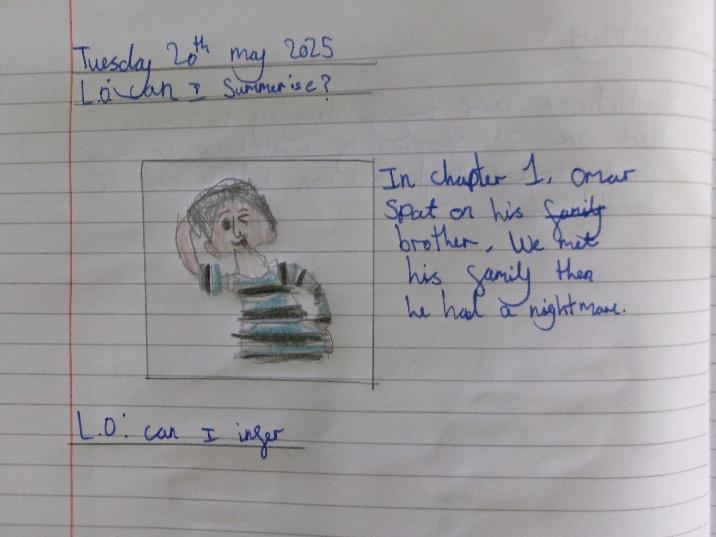 Tuesday 20th may 2025
L.O: can I Summerise?
In chapter 1, Omar
Spat on his family
brother. We met
his family then
he had a nightmare.
L.O: can I infer